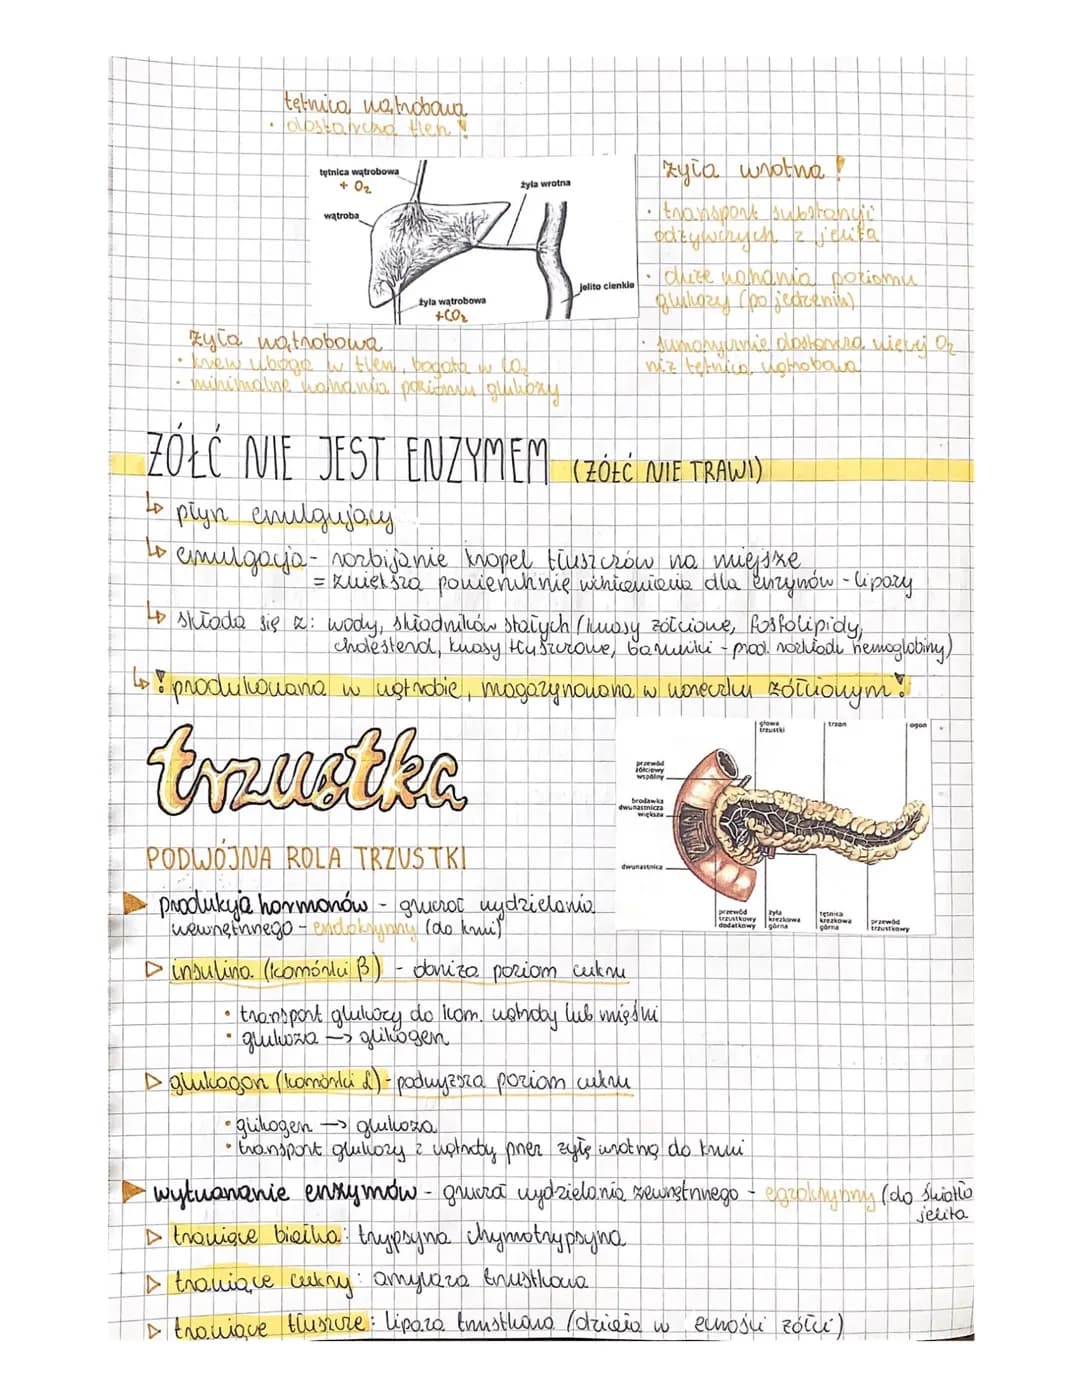 tętnica wątrobowa
• dostarcza tlen !
tętnica wątrobowa
+ O₂
żyła wrotna
wątroba
jelito cienkie
żyła wątrobowa
+CO₂
żyła wrotna !
• transport substancji
odżywczych z jelita
• duże wahania poziomu
glukozy (po jedzeniu)
• sumarycznie dostarcza więcej O₂
niż tętnica wątrobowa
żyła wątrobowa
• krew uboga w tlen, bogata w CO₂
• minimalne wahania poziomu glukozy
ŻÓŁĆ NIE JEST ENZYMEM (ŻÓŁĆ NIE TRAWI)
↳ płyn emulgujący
↳ emulgacja - rozbijanie kropel tłuszczów na miejsze
= zwiększa powierzchnię wchłaniania dla enzymów - lipazy
↳ składa się z: wody, składników stałych (kwasy żółciowe, fosfolipidy,
cholesterol, kwasy tłuszczowe, barwniki - prod. rozkładu hemoglobiny)
↳ ! produkowana w wątrobie, magazynowana w woreczku żółciowym !
trzustka
głowa
trzustki
trzon
ogon
przewód
żółciowy
wspólny
brodawka
dwunastnicza
większa
dwunastnica
przewód
trzustkowy
dodatkowy
żyła
krezkowa
górna
tętnica
krezkowa
górna
przewód
trzustkowy
PODWÓJNA ROLA TRZUSTKI
▶ produkcja hormonów - gruczoł wydzielania
wewnętrznego - endokrynny (do krwi)
▷ insulina (komórki β) - obniża poziom cukru
• transport glukozy do kom. wątroby lub mięśni
• glukoza → glikogen
▷ glukagon (komórki α) - podwyższa poziom cukru
• glikogen → glukoza
• transport glukozy z wątroby przez żyłę wrotną do krwi
▶ wytwarzanie enzymów - gruczoł wydzielania zewnętrznego - egzokrynny (do światła
jelita
▷ trawiące białka: trypsyna chymotrypsyna
▷ trawiące cukry: amylaza trzustkowa
▷ trawiące tłuszcze: lipaza trzustkowa (działa w